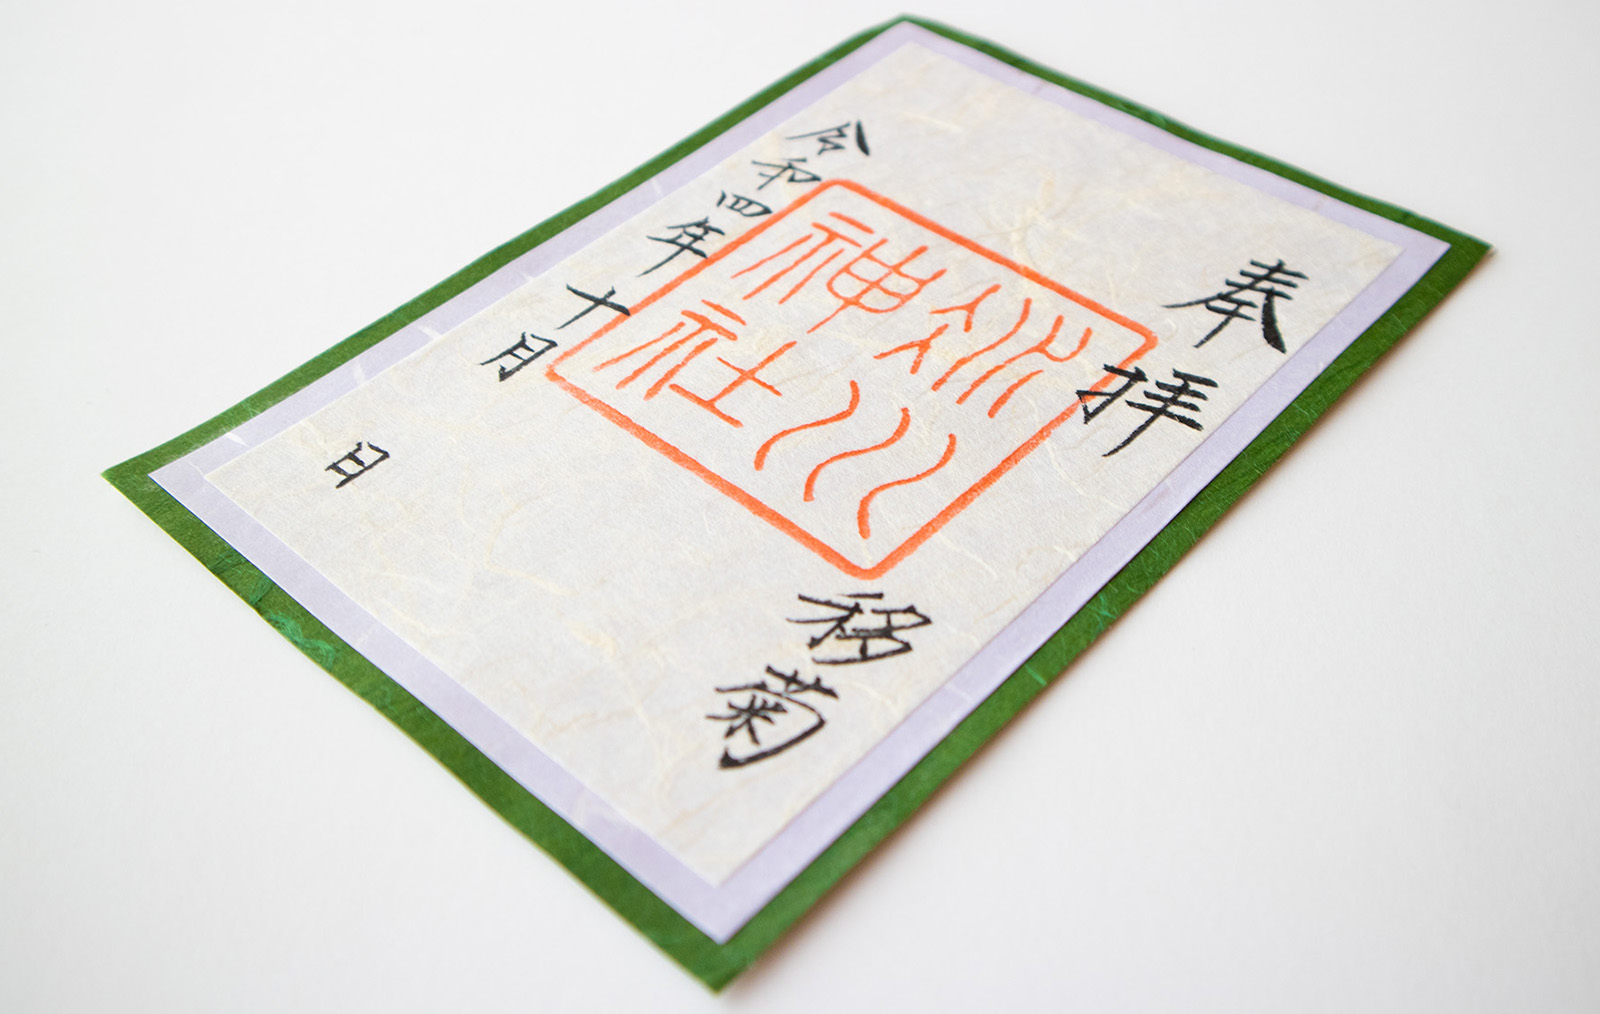 奉拝
移菊
川
神社
令和四年十月 日